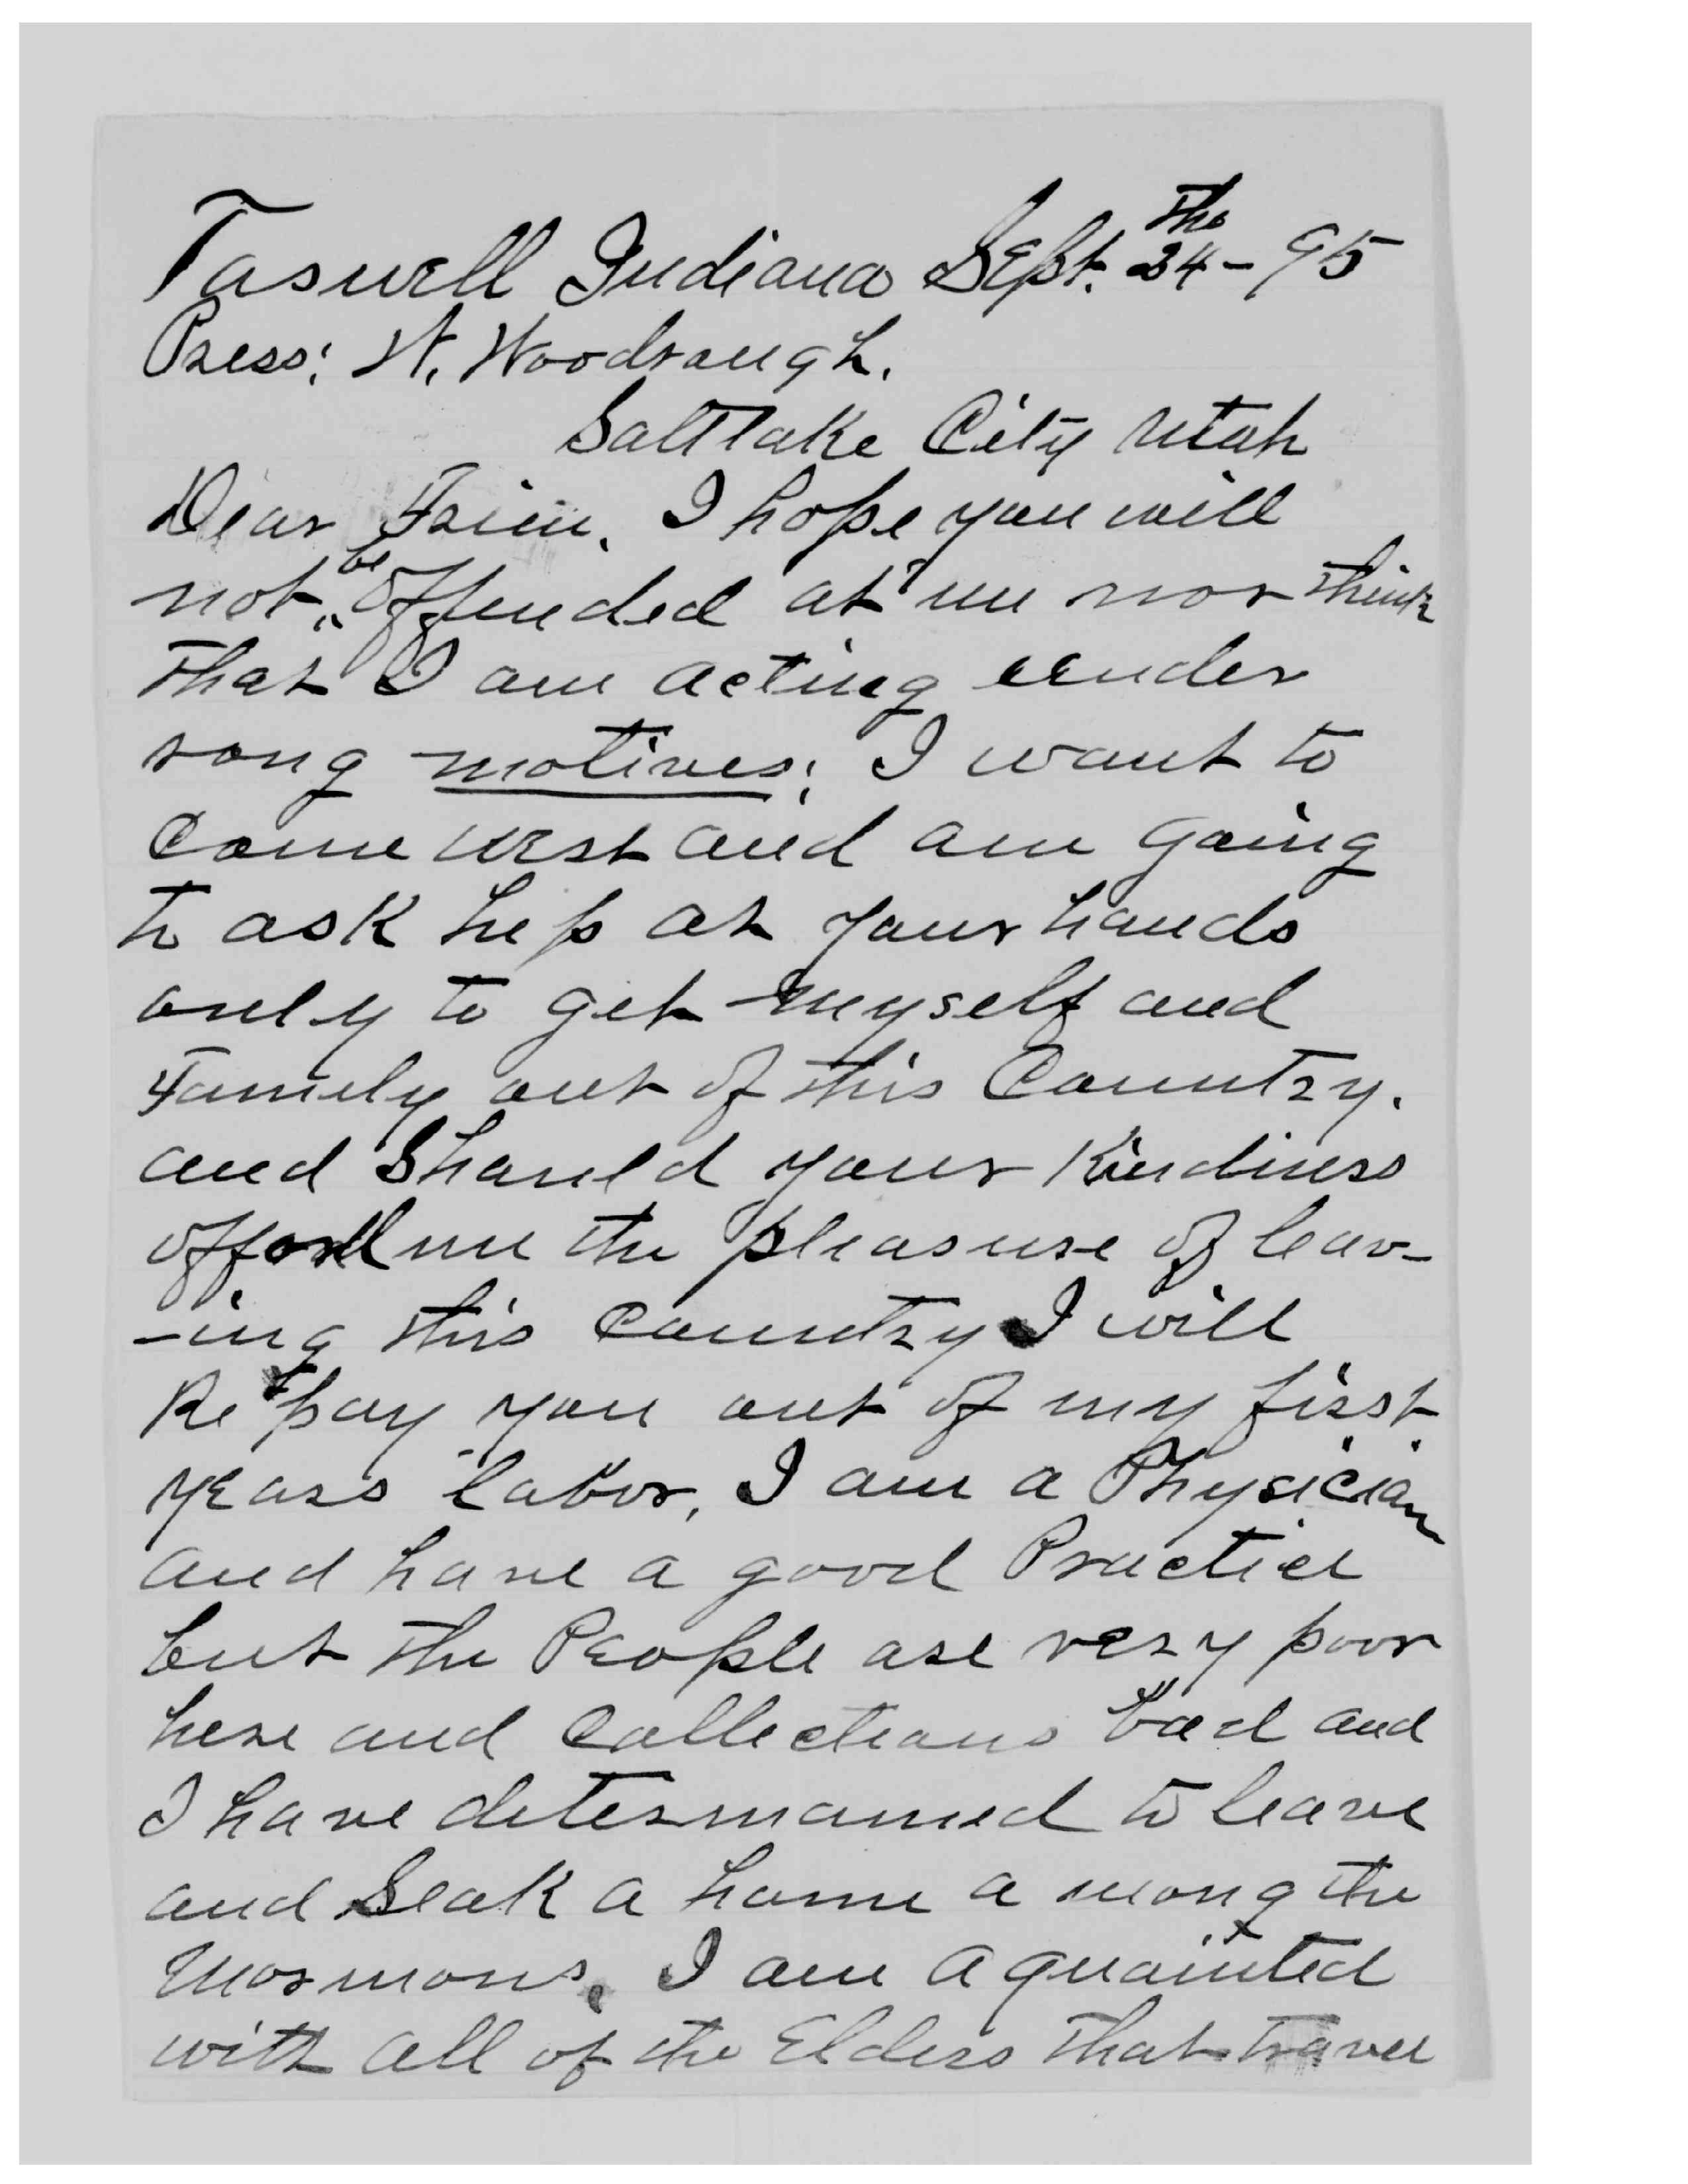 Taswell Indiana Sept. 24 the - 95
Press: W. Woodraugh.
Saltlake City Utah
Dear Frien. I hope you will
not be offended at me nor think
that I am acting under
rong motives; I want to
Come west and am going
to ask help at your hands
only to get myself and
Family out of this Country.
and Should your Kindness
offord me the pleasure of leav-
-ing this Country I will
Re pay you out of my first
years labor, I am a Physician
and have a good Practice
but the People are very poor
here and Collections bad and
I have determamed to leave
and Seak a home a mong the
Mormons. I am aquainted
with all of the Elders that travel